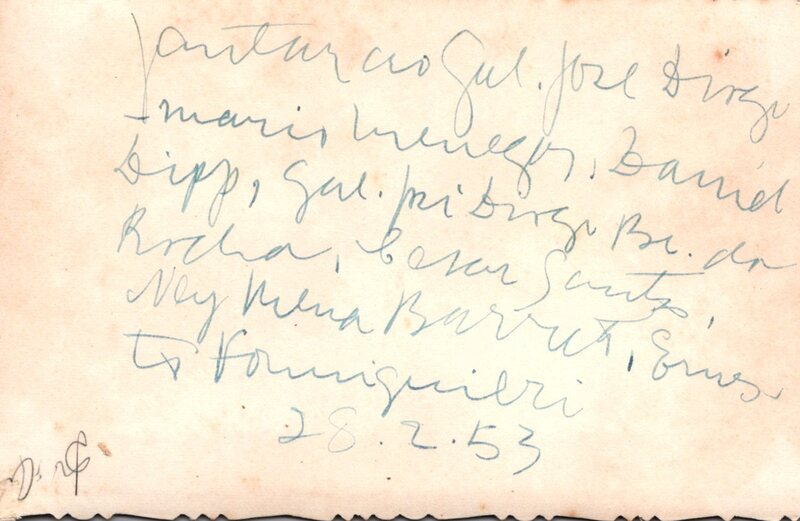 Jantar ao Gal. José Diogo
- Mario Menegaz, David
Dipp, Gal. José Diogo Br. da
Rocha, Cesar Santos,
Ney Menna Barreto, Ernes-
to Formighieri
28.2.53